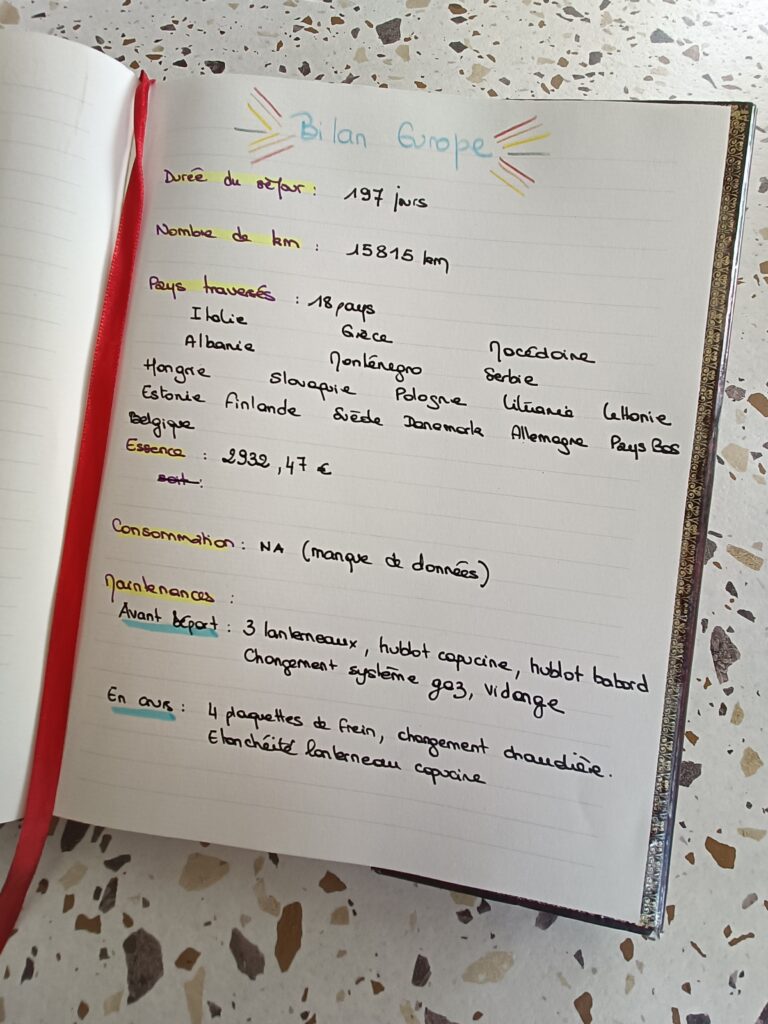 Bilan Europe
Durée du séjour : 197 jours
Nombre de km : 15815 km
Pays traversés : 18 pays
Italie Grèce Macédoine
Albanie Monténegro Serbie
Hongrie Slovaquie Pologne Lituanie Lettonie
Estonie Finlande Suède Danemark Allemagne Pays Bas
Belgique
Essence : 2932,47 €
soit :
Consommation : NA (manque de données)
Maintenances :
Avant Départ : 3 lanterneaux, hublot capucine, hublot babord
Changement système gaz, vidange
En cours : 4 plaquettes de frein, changement chaudière.
Etanchéité lanterneau capucine